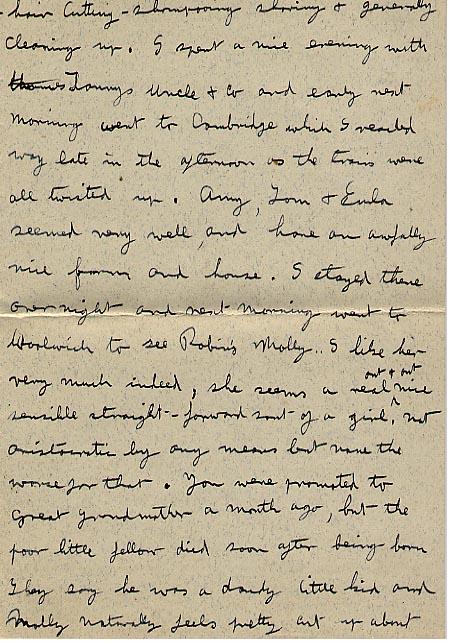 - hair cutting - shampooing shaving & generally
cleaning up. I spent a nice evening with
Tommys Uncle & Co and early next
morning went to Cambridge which I reached
way late in the afternoon as the trains were
all twisted up. Amy, Tom & Enla
seemed very well, and have an awfully
nice farm and house. I stayed there
over night and next morning went to
Woolwich to see Robin's Molly.. I like her
very much indeed, she seems a real out & out nice
sensible straight-forward sort of a girl, not
aristocratic by any means but none the
worse for that. You were promoted to
great grandmother a month ago, but the
poor little fellow died soon after being born
They say he was a dandy little kid and
Molly naturally feels pretty cut up about